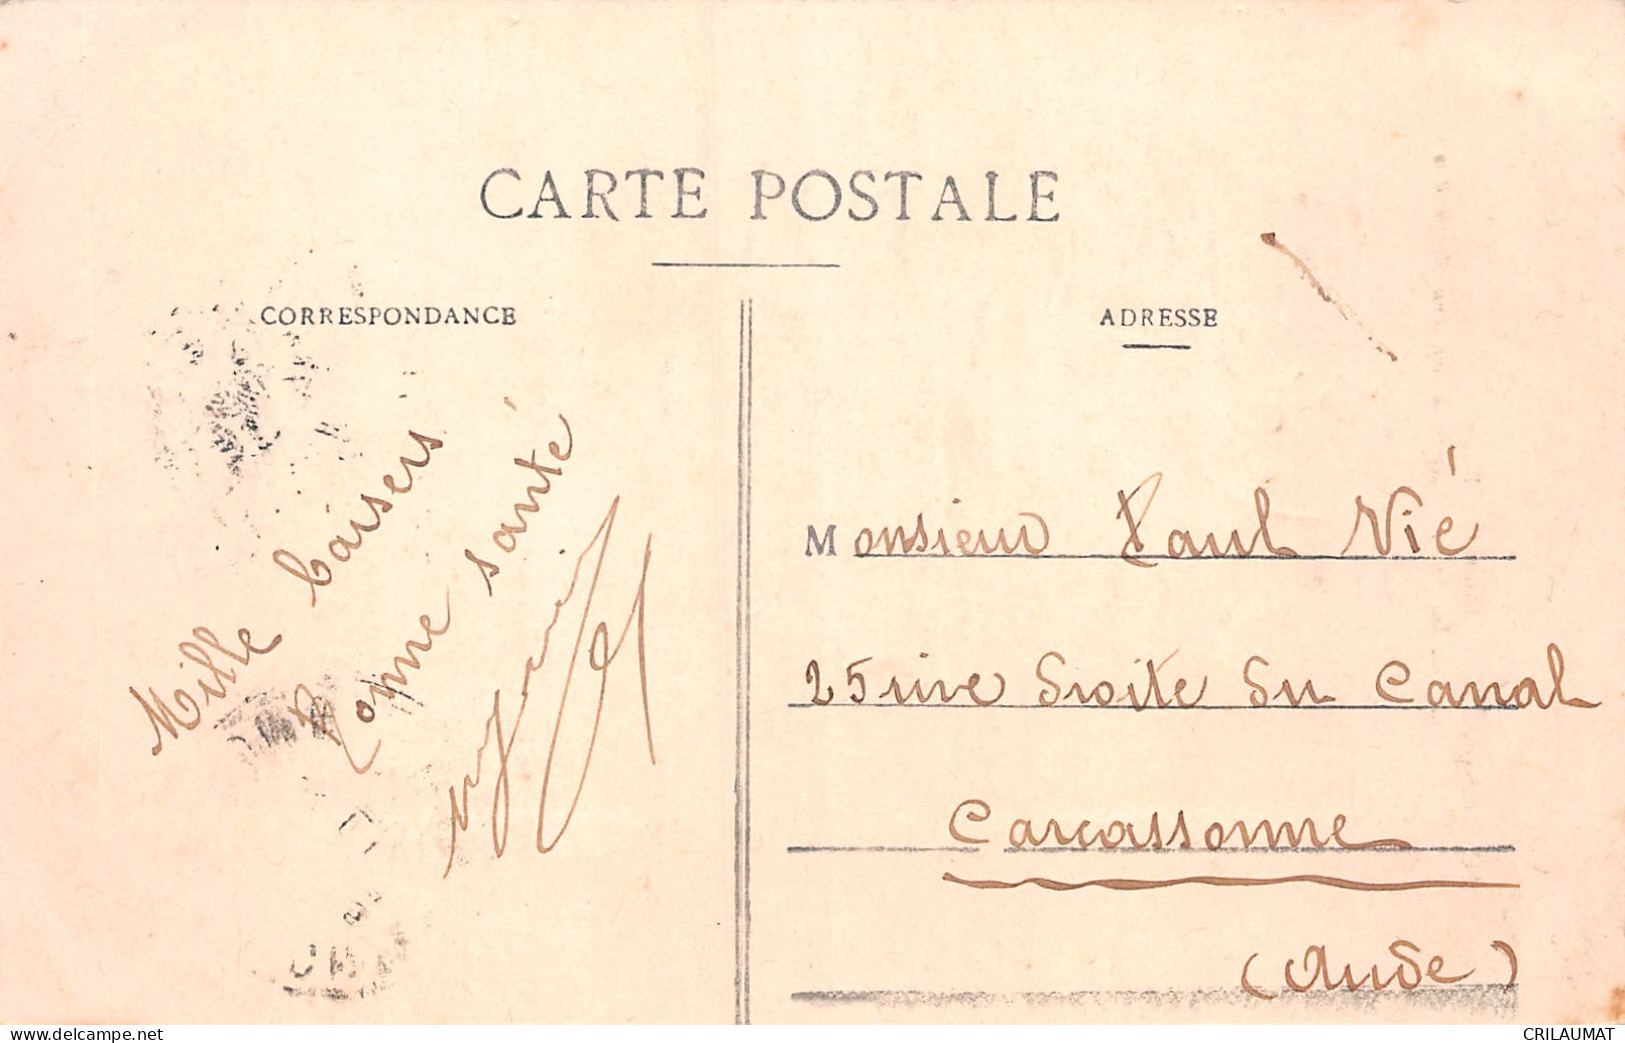 CARTE POSTALE
CORRESPONDANCE
ADRESSE
Mille baisers
Bonne santé
Monsieur Paul Vié
25 rue droite du Canal
Carcassonne
(Aude)
www.delcampe.net
CRILAUMAT